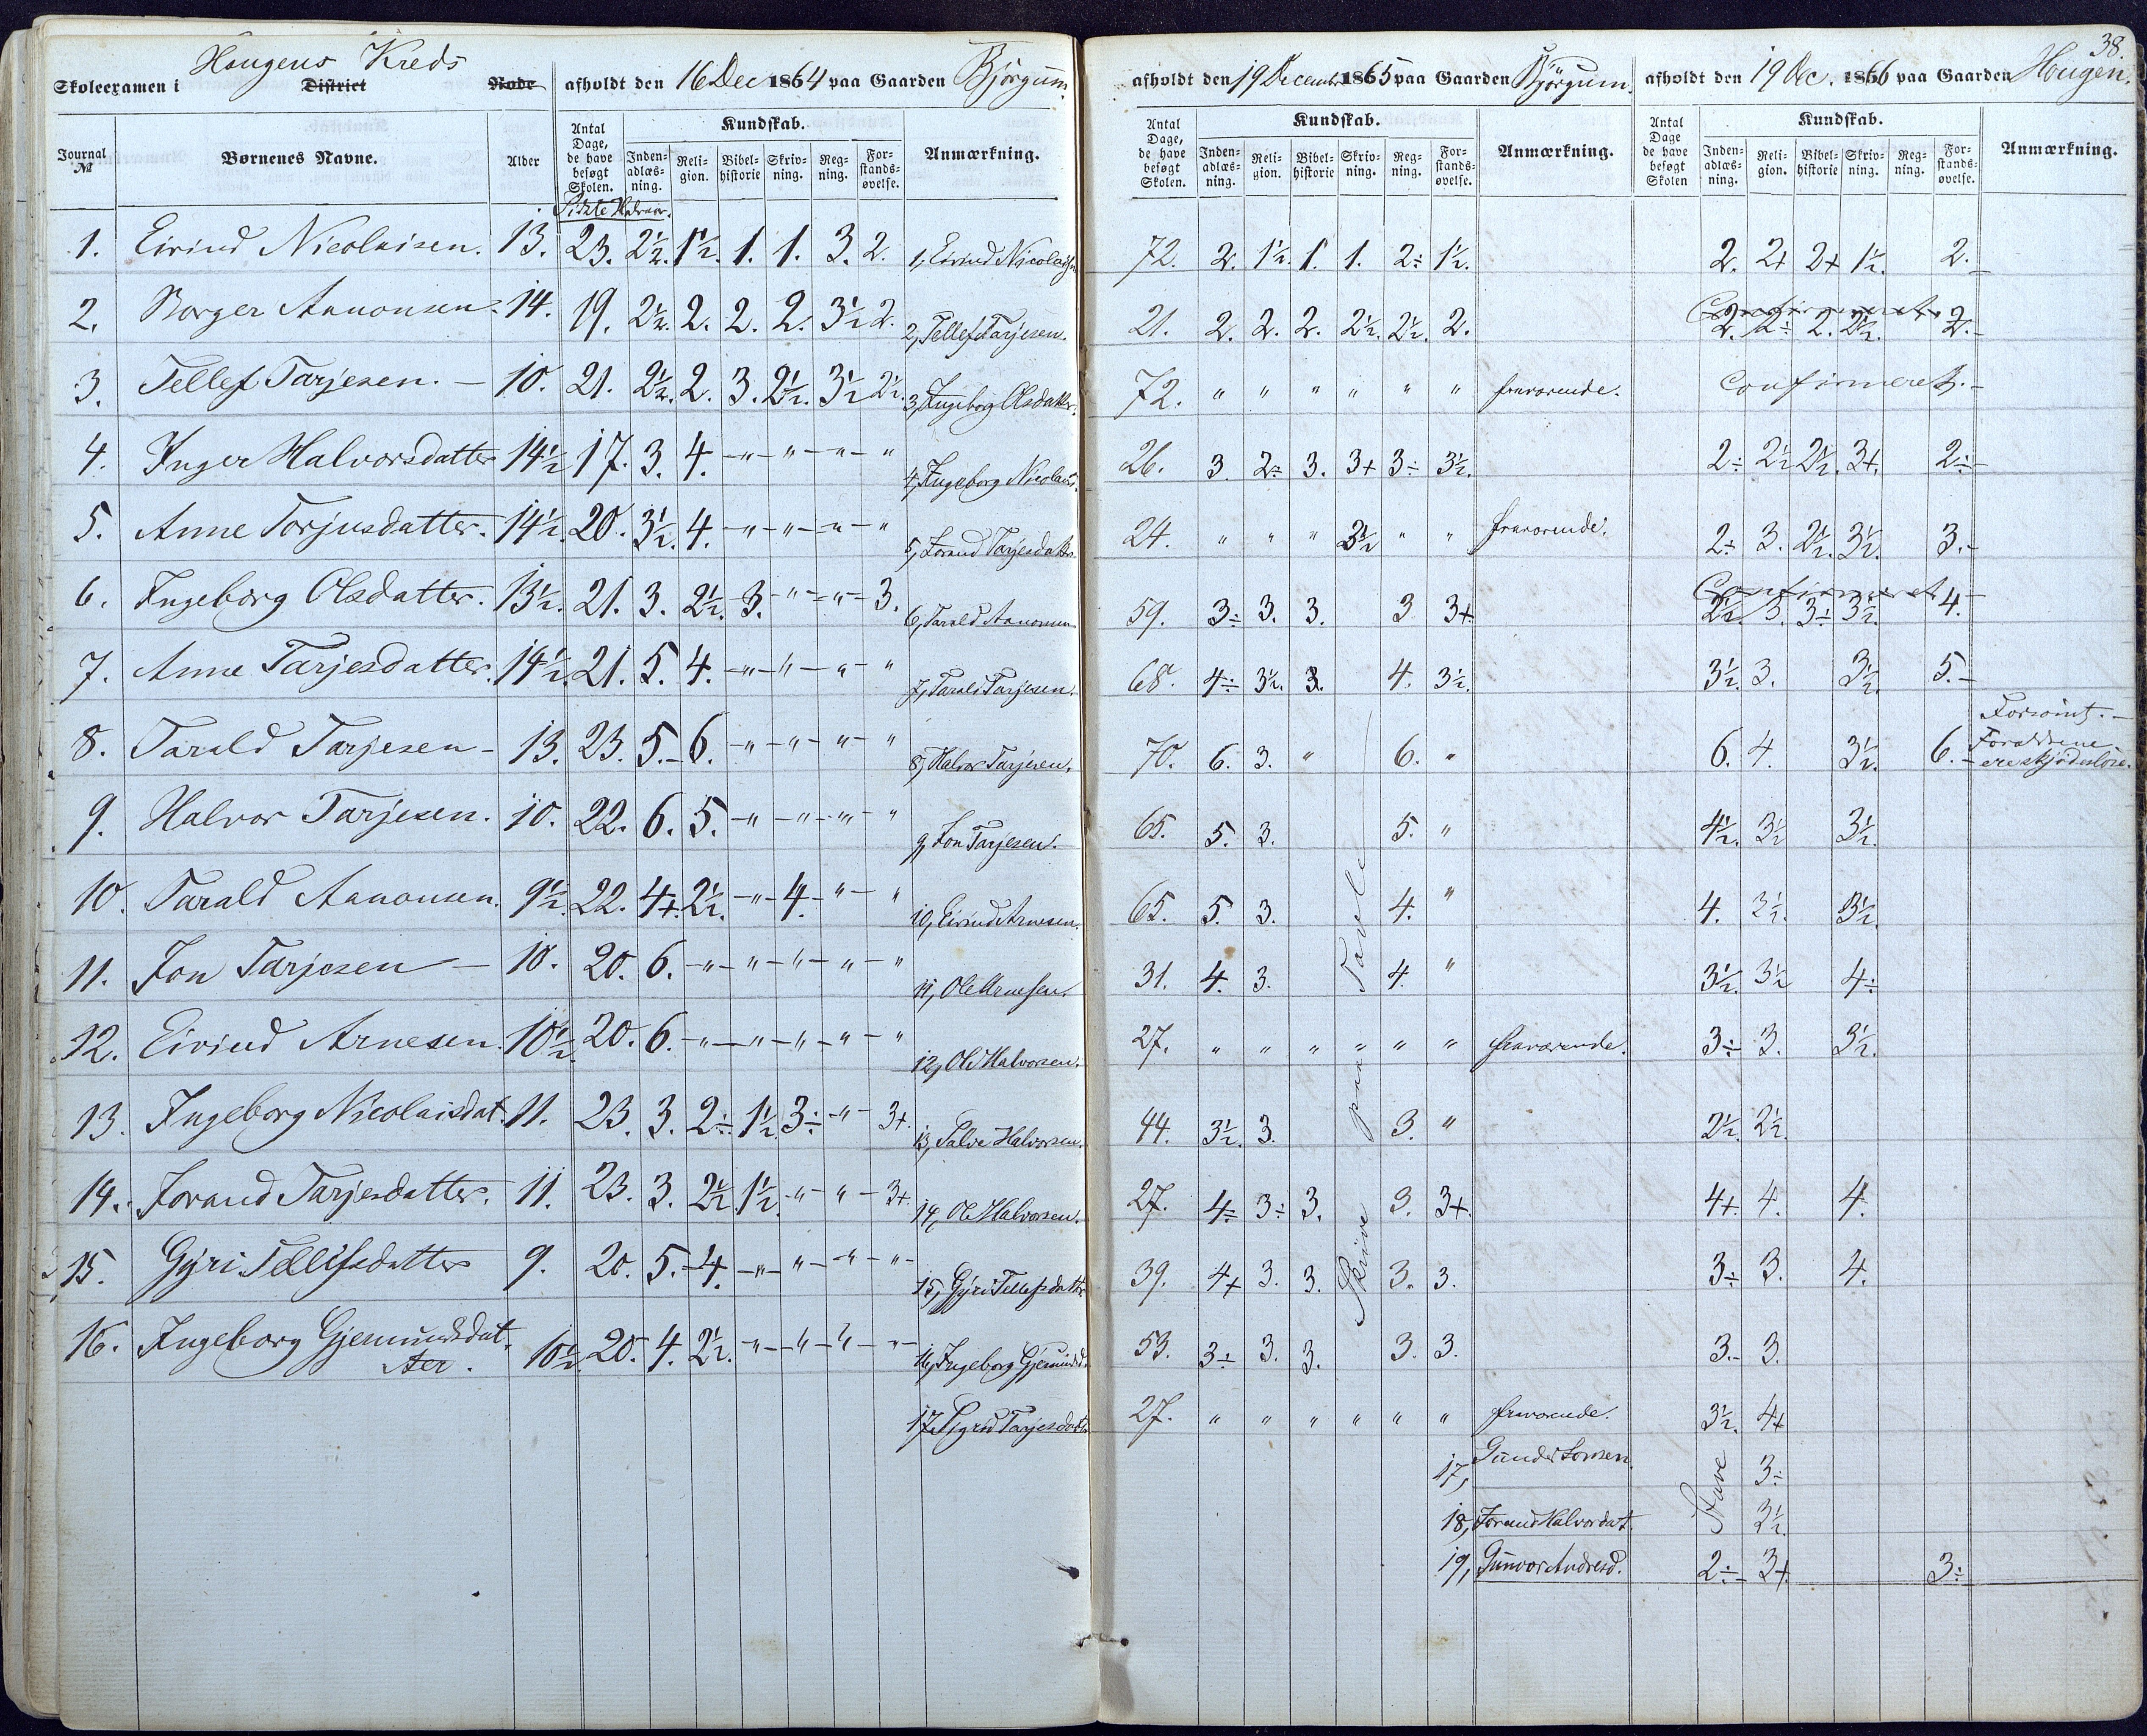 38.
Skoleexamen i Hougens Kreds District Rode afholdt den 16 Dec 1864 paa Gaarden Bjørgum.
Journal № Børnenes Navne. Alder Antal Dage, de have besøgt Skolen. Kundskab. Inden-adlæs-ning. Reli-gion. Bibel-historie Skriv-ning. Reg-ning. For-stands-øvelse. Anmærkning.
Sidste Halvaar.
1. Eivind Nicolaisen. 13. 23. 2½. 1½. 1. 1. 3. 2. 1, Eivind Nicolaisen
2. Borger Aanonsen. 14. 19. 2½. 2. 2. 2. 3½ 2. 2, Tellef Tarjesen.
3. Tellef Tarjesen. — 10. 21. 2½. 2. 3. 2½. 3½ 2½. 3, Ingeborg Olsdatter.
4. Inger Halvorsdatter 14½ 17. 3. 4. -"-"-"-" 4, Ingeborg Nicolais.
5. Anne Torjusdatter. 14½. 20. 3½. 4. -"-"-"-" 5, Jorand Tarjesdatter.
6. Ingeborg Olsdatter. 13½. 21. 3. 2½. 3. -"-"- 3. 6, Tarald Aanonsen
7. Anne Tarjesdatter. 14½. 21. 5. 4. -"-"-"-" 7, Tarald Tarjesen.
8. Tarald Tarjesen - 13. 23. 5. - 6. -"-"-"-" 8, Halvor Tarjesen.
9. Halvor Tarjesen. 10. 22. 6. 5. -"-"-"-" 9, Jon Tarjesen.
10. Tarald Aanonsen. 9½. 22. 4+. 2½. -"- 4. -"-" 10, Eivind Arnesen.
11. Jon Tarjesen — 10. 20. 6. -"-"-"-"-" 11, Ole Arnesen.
12. Eivind Arnesen. 10½ 20. 6. -"-"-"-"-" 12, Ole Halvorsen.
13. Ingeborg Nicolaisdat. 11. 23. 3. 2÷ 1½ 3÷ -"- 3+. 13, Salve Halvorsen.
14. Jorand Tarjesdatter. 11. 23. 3. 2½ 1½. -"-"- 3+. 14, Ole Halvorsen.
15. Gyri Tellefsdatter 9. 20. 5. - 4. -"-"-"-"- 15, Gyri Tellefsdatter
16. Ingeborg Gjermundsdat. 10½. 20. 4. 2½. -"-"-"-"- 16, Ingeborg Gjermundsd.
ter.
17, Sigrid Tarjesdatter
afholdt den 19 December 1865 paa Gaarden Bjørgum.
Antal Dage, de have besøgt Skolen. Kundskab. Inden-adlæs-ning. Reli-gion. Bibel-historie Skriv-ning. Reg-ning. For-stands-øvelse. Anmærkning.
72. 2. 1½. 1. 1. 2÷ 1½.
21. 2. 2. 2. 2½. 2½. 2.
72. " " " " " " fraværende.
26. 3. 2÷ 3. 3+ 3÷ 3½.
24. " " " 3½ " " fraværende.
59. 3÷ 3. 3. 3 3+
68. 4÷ 3½. 3. 4. 3½.
70. 6. 3. " 6. "
65. 5. 3. 5. "
65. 5. 3. 4. "
31. 4. 3. 4. "
27. " " " " " " fraværende.
44. 3½. 3. 3. "
27. 4÷ 3÷ 3. 3. 3+.
39. 4+ 3. 3. 3. 3.
53. 3÷ 3. 3. 3. 3.
27. " " " " " " fraværende.
Skrive paa Tavle
17, Gunder Larssen.
18, Jorand Halvordat.
19, Gunvor Andresd.
afholdt den 19 Dec. 1866 paa Gaarden Hougen.
Antal Dage de have besøgt Skolen Kundskab. Inden-adlæs-ning. Reli-gion. Bibel-historie Skriv-ning. Reg-ning. For-stands-øvelse. Anmærkning.
2. 2+ 2+ 1½. 2. -
Confirmeret.
2. 2÷ 2. 2½. 2. -
Confirmeret. -
2÷ 2½ 2½. 3+. 2÷ -
2÷ 3. 2½. 3½. 3. -
Confirmeret
2½. 3. 3÷ 3½. 4. -
3½. 3. 3½. 5. -
Forsømt. -
6. 4. 3½. 6. - Forældrene
ere skjødesløse.
4½. 3½ 3½.
4. 3½. 3½.
3½. 3½ 4÷
3÷ 3. 3½.
2½. 2½.
4+. 4. 4.
3÷ 3. 4.
3. - 3.
3½. 4+
Stave 3÷
3½.
2÷ 3+. 3÷